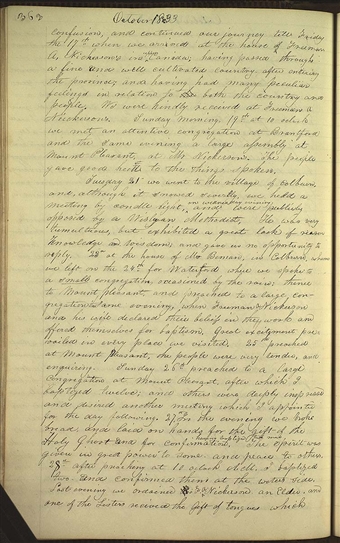 October 1833
confusion, and continued our journey till Friday
the 17th when we arrived at the house of Freeman
A. Nickerson's in Canada, having passed through
a fine and well cultivated country after entering
the province, and having had many peculiar
feelings in relation to both the country and
people. We were kindly received at Freeman A
Nickerson's. Sunday morning 19th at 10 o'clock
we met an attentive congregation at Brantford
and the same evening a large assembly at
Mount Pleasant, at Mr Nickerson's. The people
gave good heed to the things spoken.
Tuesday 21st we went to the village of Colburn
and although it snowed severely, we held a
meeting by candle light on wednesday evening, and were publicly
opposed by a Wesleyan Methodist. He was very
tumultuous, but exhibited a great lack of reason
knowledge and wisdom, and gave us no opportunity to
reply. 23d at the house of Mr Beman, in Colburn, whence
we left on the 24th for Waterford where we spoke to
a small congregation occasioned by the rain; thence
to Mount pleasant and preached to a large con-
gregation the same evening, when Freeman Nickerson
and his wife declared their beliefs in the work and
offered themselves for baptism. Great excitement pre-
vailed in every place we visited. 25th preached
at Mount Pleasant, the people were very tender, and
enquiring. Sunday 26th preached to a large
Congregation at Mount Pleasant, after which I
baptized twelve, and others were deeply impressed
and desired another meeting which I appointed
for the day following. 27th In the evening we broke
bread and laid on hands for the gift of the
Holy Ghost and for confirmation, The spirit was
given in great power to some, and peace to others.
28th after preaching at 10 o'clock I baptized
two and confirmed them at the water side.
Last evening we ordained F. A. Nickerson an Elder and
one of the Sisters received the gift of tongues which